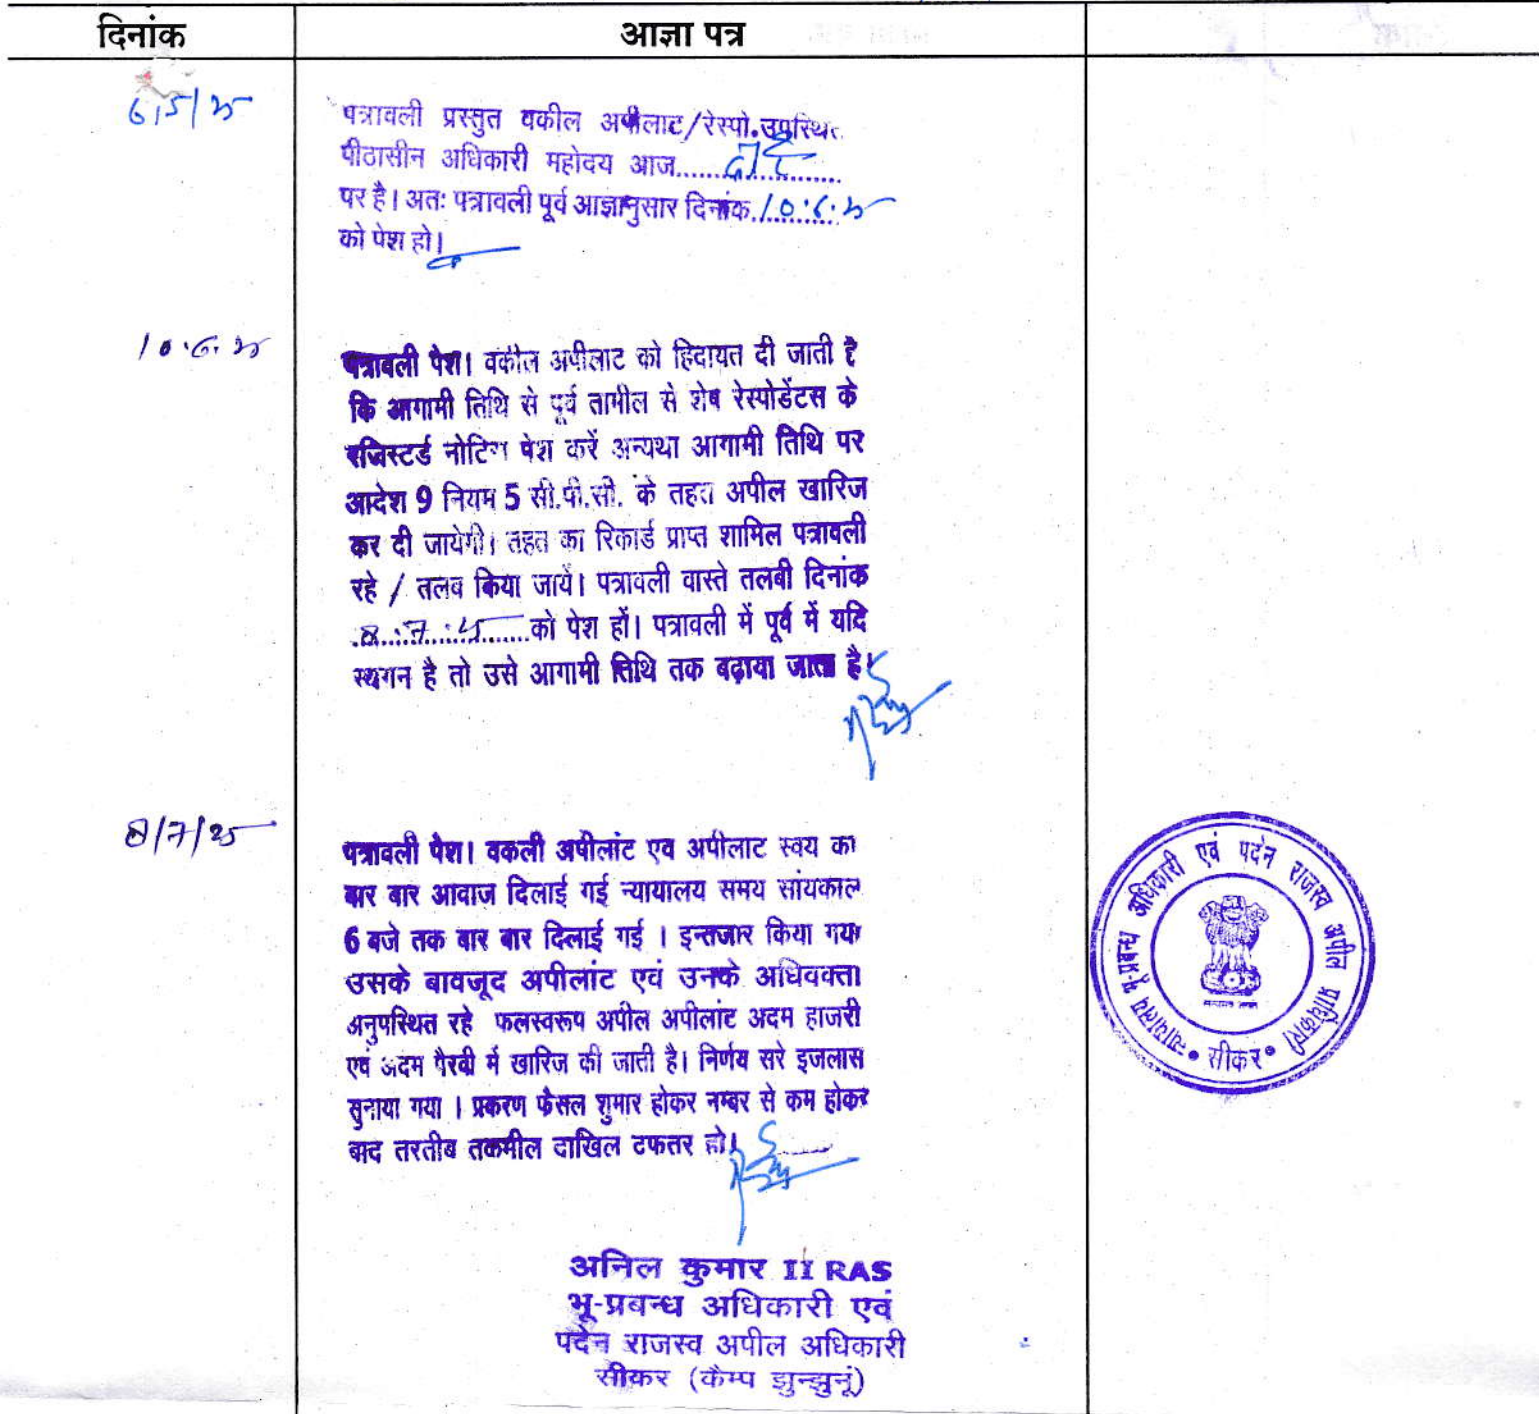 दिनांक
आज्ञा पत्र
6/5/25
पत्रावली प्रस्तुत वकील अपीलाट/रेस्पो.उपस्थित
पीठासीन अधिकारी महोदय आज..................
पर है। अतः पत्रावली पूर्व आज्ञानुसार दिनांक 10.6.25
को पेश हो।
10.6.25
पत्रावली पेश। वकील अपीलाट को हिदायत दी जाती है
कि आगामी तिथि से पूर्व तामील से शेष रेस्पोडेंटस के
रजिस्टर्ड नोटिस पेश करें अन्यथा आगामी तिथि पर
आदेश 9 नियम 5 सी.पी.सी. के तहत अपील खारिज
कर दी जायेगी। तहत का रिकार्ड प्राप्त शामिल पत्रावली
रहे / तलब किया जाये। पत्रावली वास्ते तलबी दिनांक
8.7.25 को पेश हों। पत्रावली में पूर्व में यदि
स्थगन है तो उसे आगामी तिथि तक बढ़ाया जाता है।
8/7/25
पत्रावली पेश। वकली अपीलांट एव अपीलाट स्वय का
बार बार आवाज दिलाई गई न्यायालय समय सांयकाल
6 बजे तक बार बार दिलाई गई । इन्तजार किया गया
उसके बावजूद अपीलांट एवं उनके अधिवक्ता
अनुपस्थित रहे फलस्वरूप अपील अपीलांट अदम हाजरी
एवं अदम पैरवी में खारिज की जाती है। निर्णय सरे इजलास
सुनाया गया । प्रकरण फैसल शुमार होकर नम्बर से कम होकर
बाद तरतीब तकमील दाखिल दफतर हो।
न्यायालय भू-प्रबन्ध अधिकारी एवं पदेन राजस्व अपील प्राधिकारी
• सीकर •
अनिल कुमार II RAS
भू-प्रबन्ध अधिकारी एवं
पदेन राजस्व अपील अधिकारी
सीकर (कैम्प झुन्झुनूं)